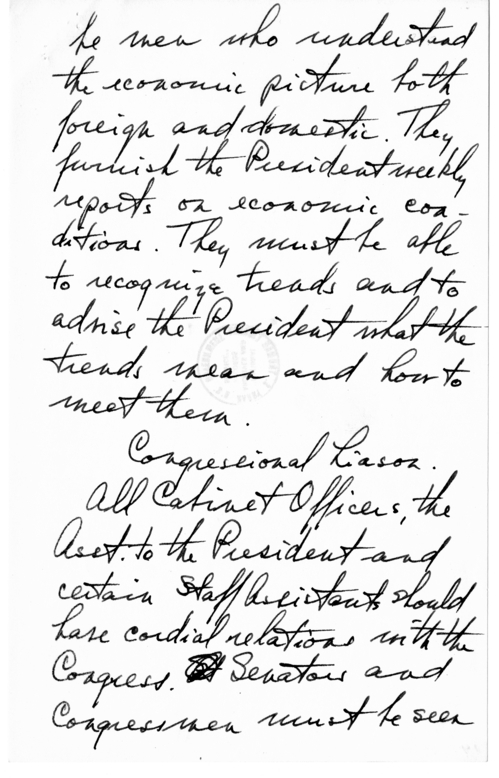 be men who understand
the economic picture both
foreign and domestic. They
furnish the President weekly
reports on economic con-
ditions. They must be able
to recognize trends and to
advise the President what the
trends mean and how to
meet them.
Congressional Liason.
All Cabinet Officers, the
Asst. to the President and
certain Staff Assistants should
have cordial relations with the
Congress. Senators and
Congressmen must be seen